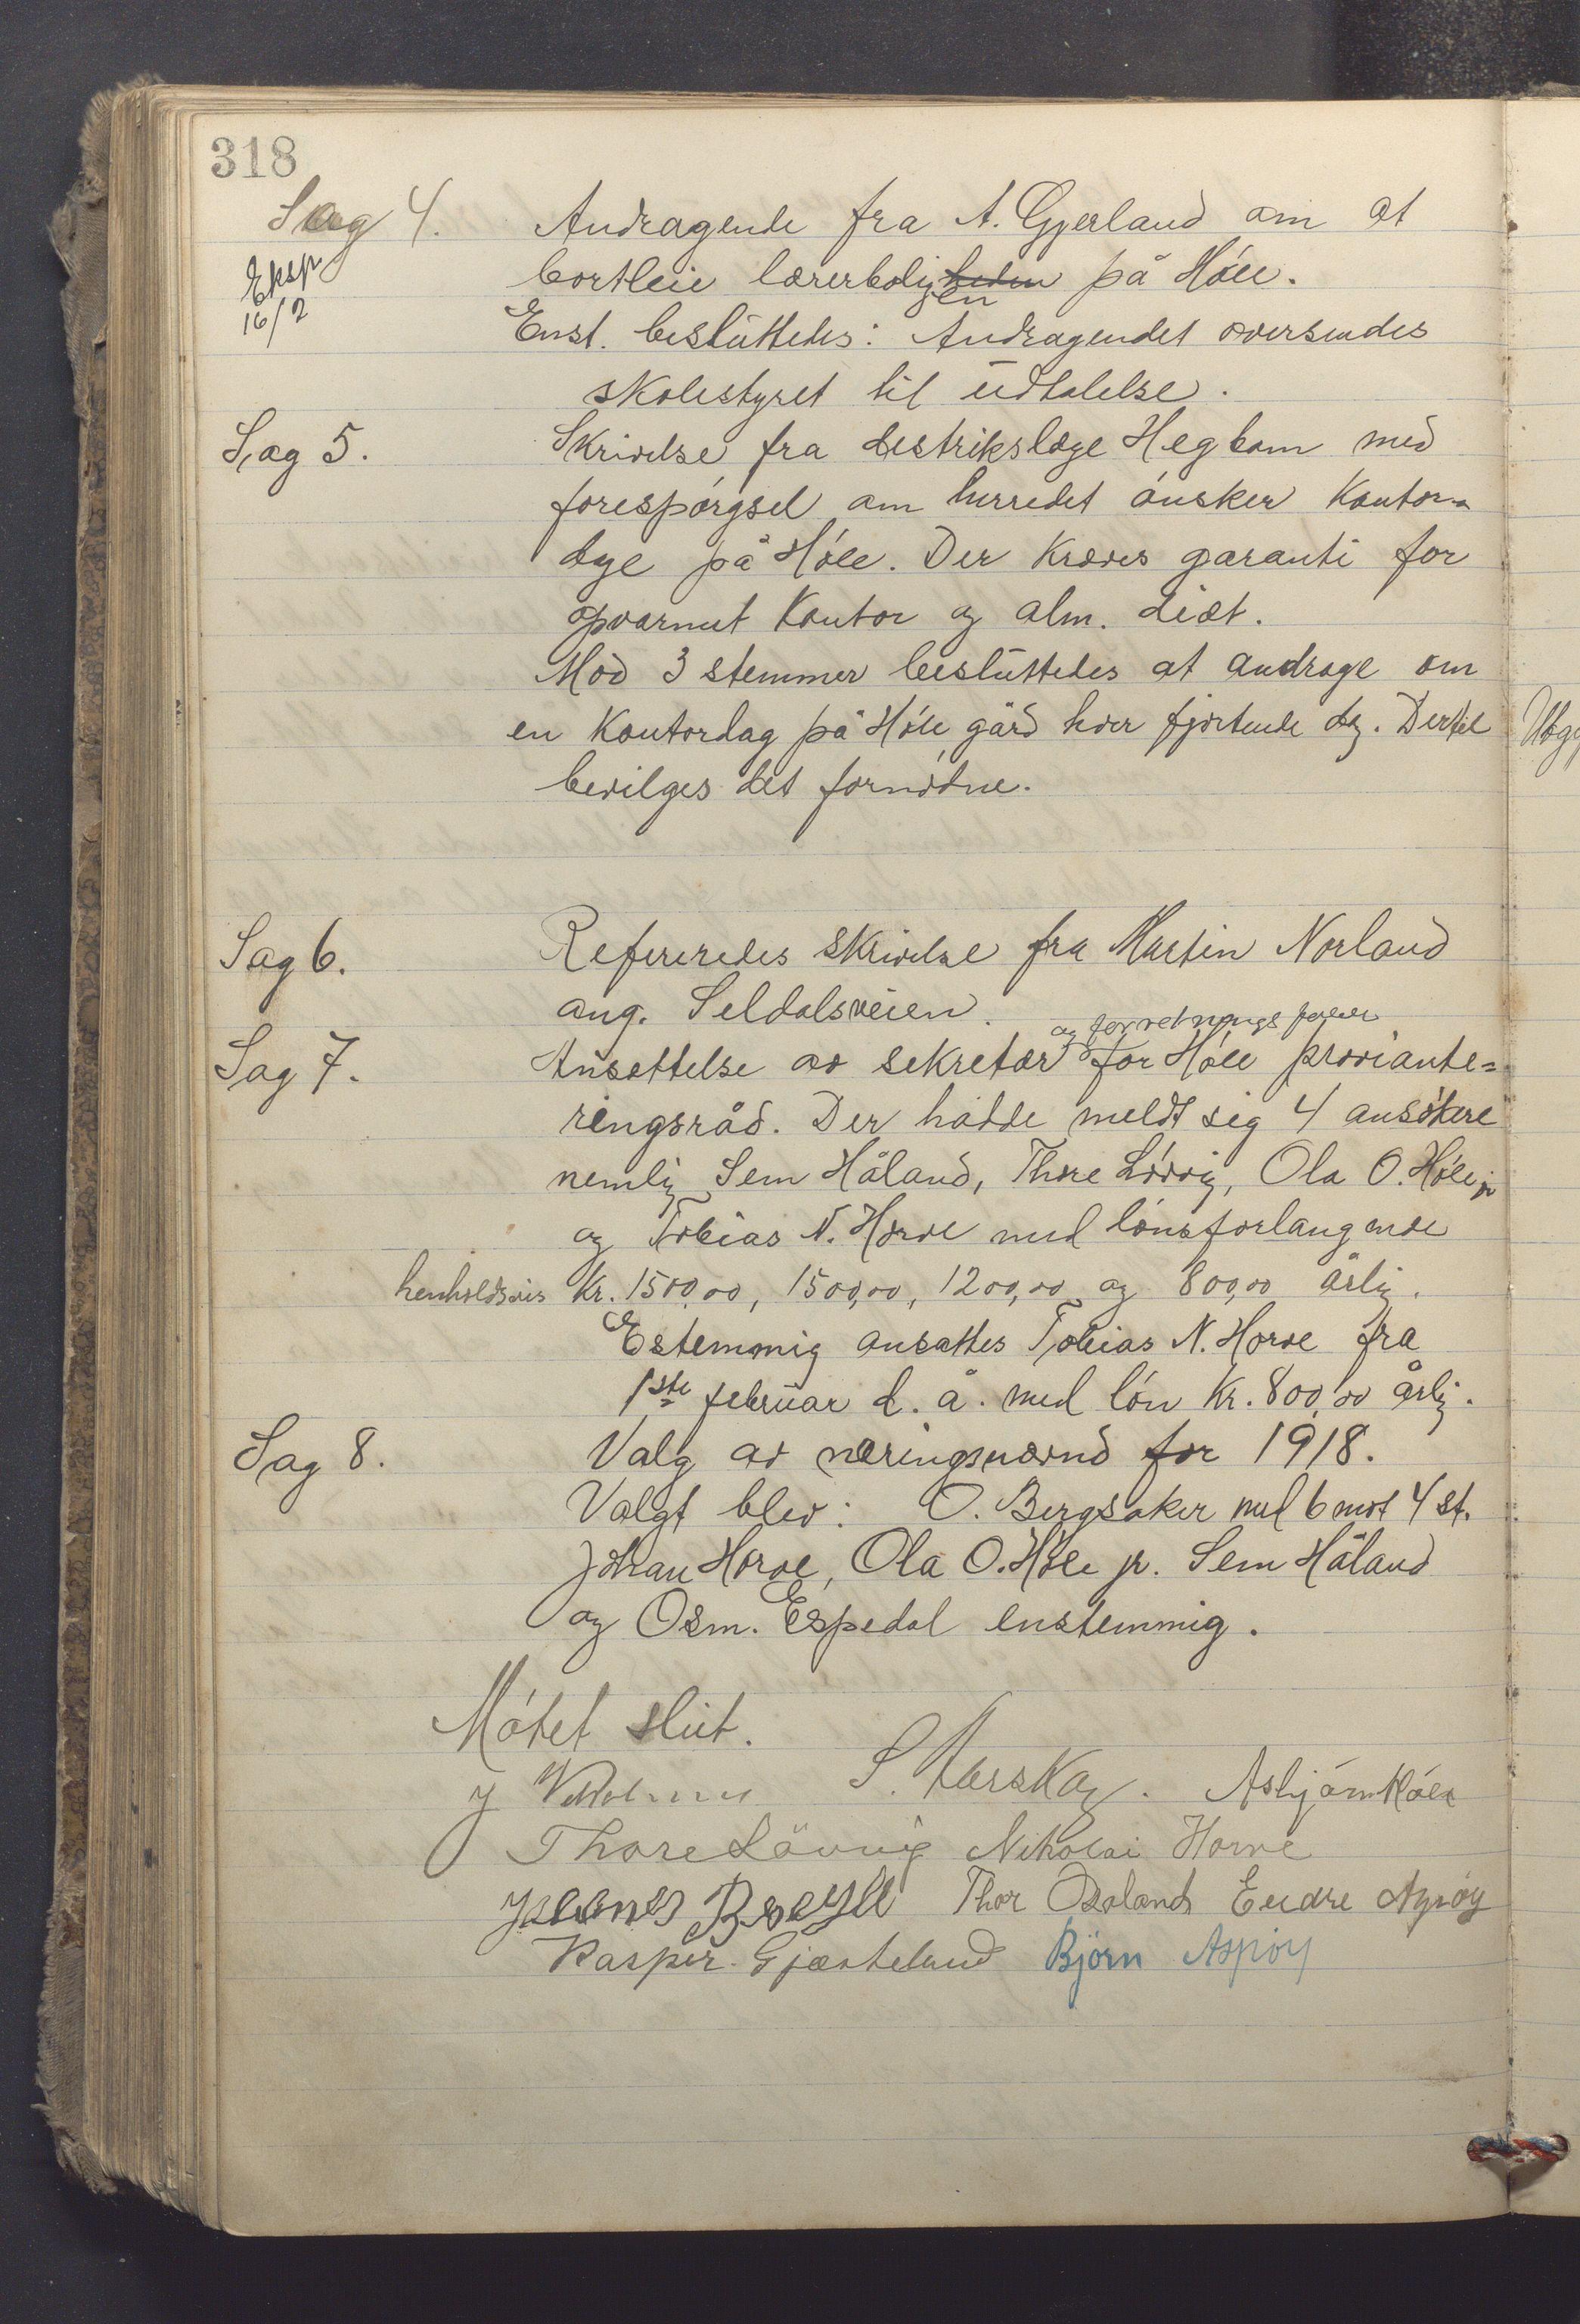 318
Sag 4. Andragende fra A. Gjerland om at
Eksp bortleie lærerboligheden en på Høle.
16/2 Enst. besluttedes: Andragendet oversendes
skolestyret til uttalelse.
Sag 5. Skrivelse fra distrikslæge Hegbom med
forespørgsel om herredet ønsker kontor-
dage på Høle. Der kræves garanti for
opvarmet kontor og alm. diæt.
Mod 3 stemmer besluttedes at andrage om
en kontordag på Høle gård hver fjortende dag. Dertil
bevilges det fornødne.
Sag 6. Refereredes skrivelse fra Martin Norland
ang. Seldalsveien.
og forretningsfører
Sag 7. Ansættelse av sekretær for Høle proviante=
ringsråd. Der hadde meldt sig 4 ansökere
nemlig Sem Håland, Thore Løvvig, Ola O. Høle jr
og Tobias N. Horve med lønsforlangende
henholdsvis kr. 1500,00, 1500,00, 1200,00 og 800,00 årlig.
Estemmig ansattes Tobias N. Horve fra
1ste februar d. å. med løn kr. 800,00 årlig.
Sag 8. Valg av næringsnævnd for 1918.
Valgt blev: O. Bergsaker med 6 mot 4 st.
Johan Horve, Ola O. Høle jr. Sem Håland
og Osm. Espedal enstemmig.
Møtet slut.
S. Aarskog. Asbjørn Høle
Thore Lövvig Nikolai Horve
Thor Osaland Endre Aspöy
Kasper Gjesteland Björn Aspöy